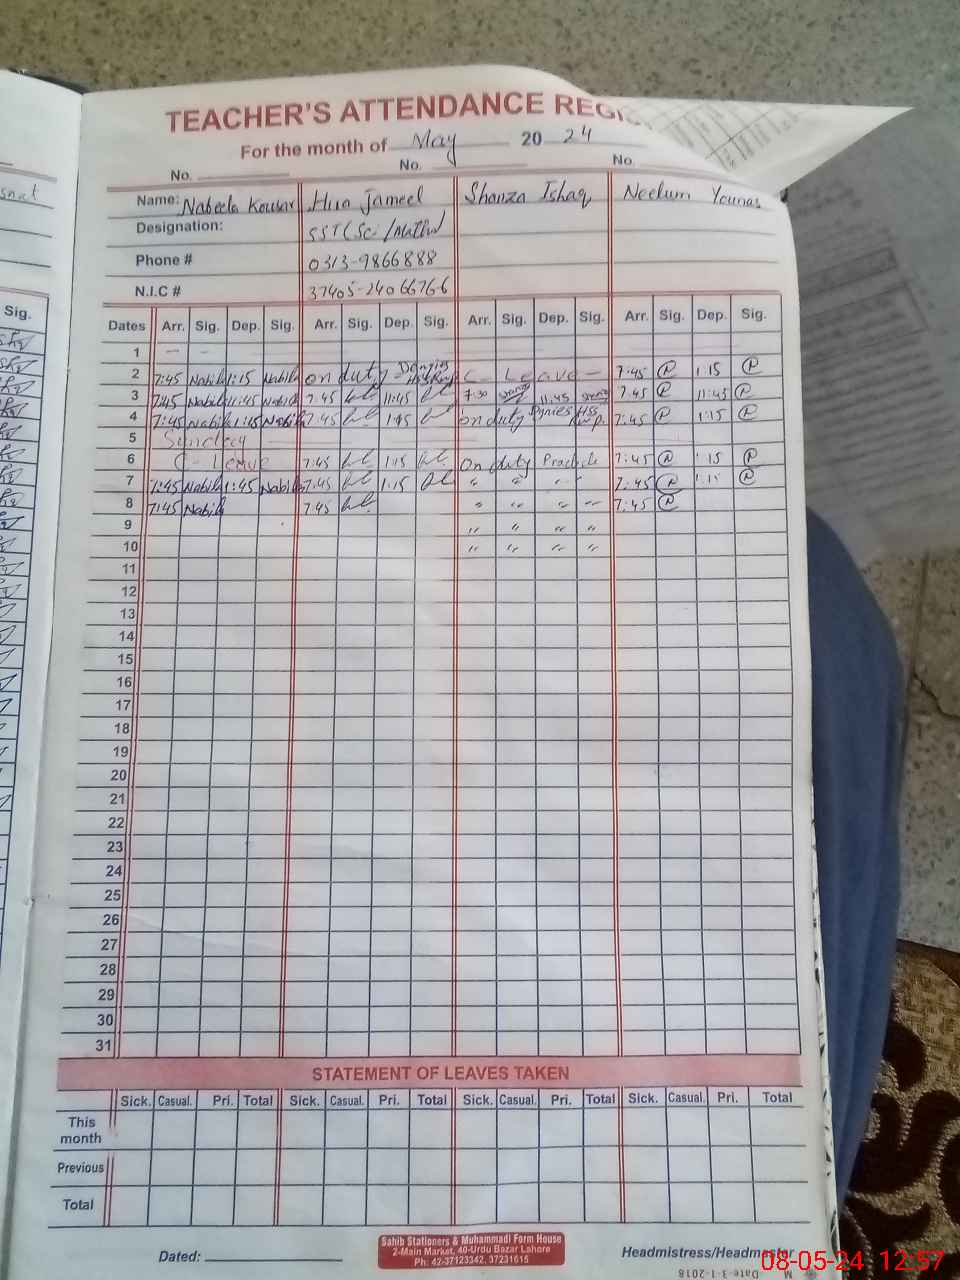 TEACHER'S ATTENDANCE REGIS
For the month of May 20 24
No. No. No.
Name: Nabeela Kousar Hira Jameel Shanza Ishaq Neelum Younas
Designation: SST (Sci/Math)
Phone # 0313-9866888
N.I.C # 37405-2406676-6
Dates Arr. Sig. Dep. Sig. Arr. Sig. Dep. Sig. Arr. Sig. Dep. Sig. Arr. Sig. Dep. Sig.
1 — -
2 7:45 Nabila 1:15 Nabila on duty - C- Leave - 7:45 1:15
3 7:45 Nabila 11:45 Nabila 7:45 11:45 7:30 11:45 7:45 11:45
4 7:45 Nabila 1:15 Nabila 7:45 1:15 on duty 7:45 1:15
5 Sunday
6 C-Leave 7:45 1:15 On duty 7:45 1:15
7 7:45 Nabila 1:45 Nabila 7:45 1:15 " " " " 7:45 1:15
8 7:45 Nabila 7:45 " " " " 7:45
9 " " " "
10 " " " "
11
12
13
14
15
16
17
18
19
20
21
22
23
24
25
26
27
28
29
30
31
STATEMENT OF LEAVES TAKEN
Sick. Casual. Pri. Total Sick. Casual. Pri. Total Sick. Casual. Pri. Total Sick. Casual. Pri. Total
This month
Previous
Total
Sahib Stationers & Muhammadi Form House
2-Main Market, 40-Urdu Bazar Lahore
Ph: 42-37123342, 37231615
Dated: Headmistress/Headmaster
08-05-24 12:57
Sig.